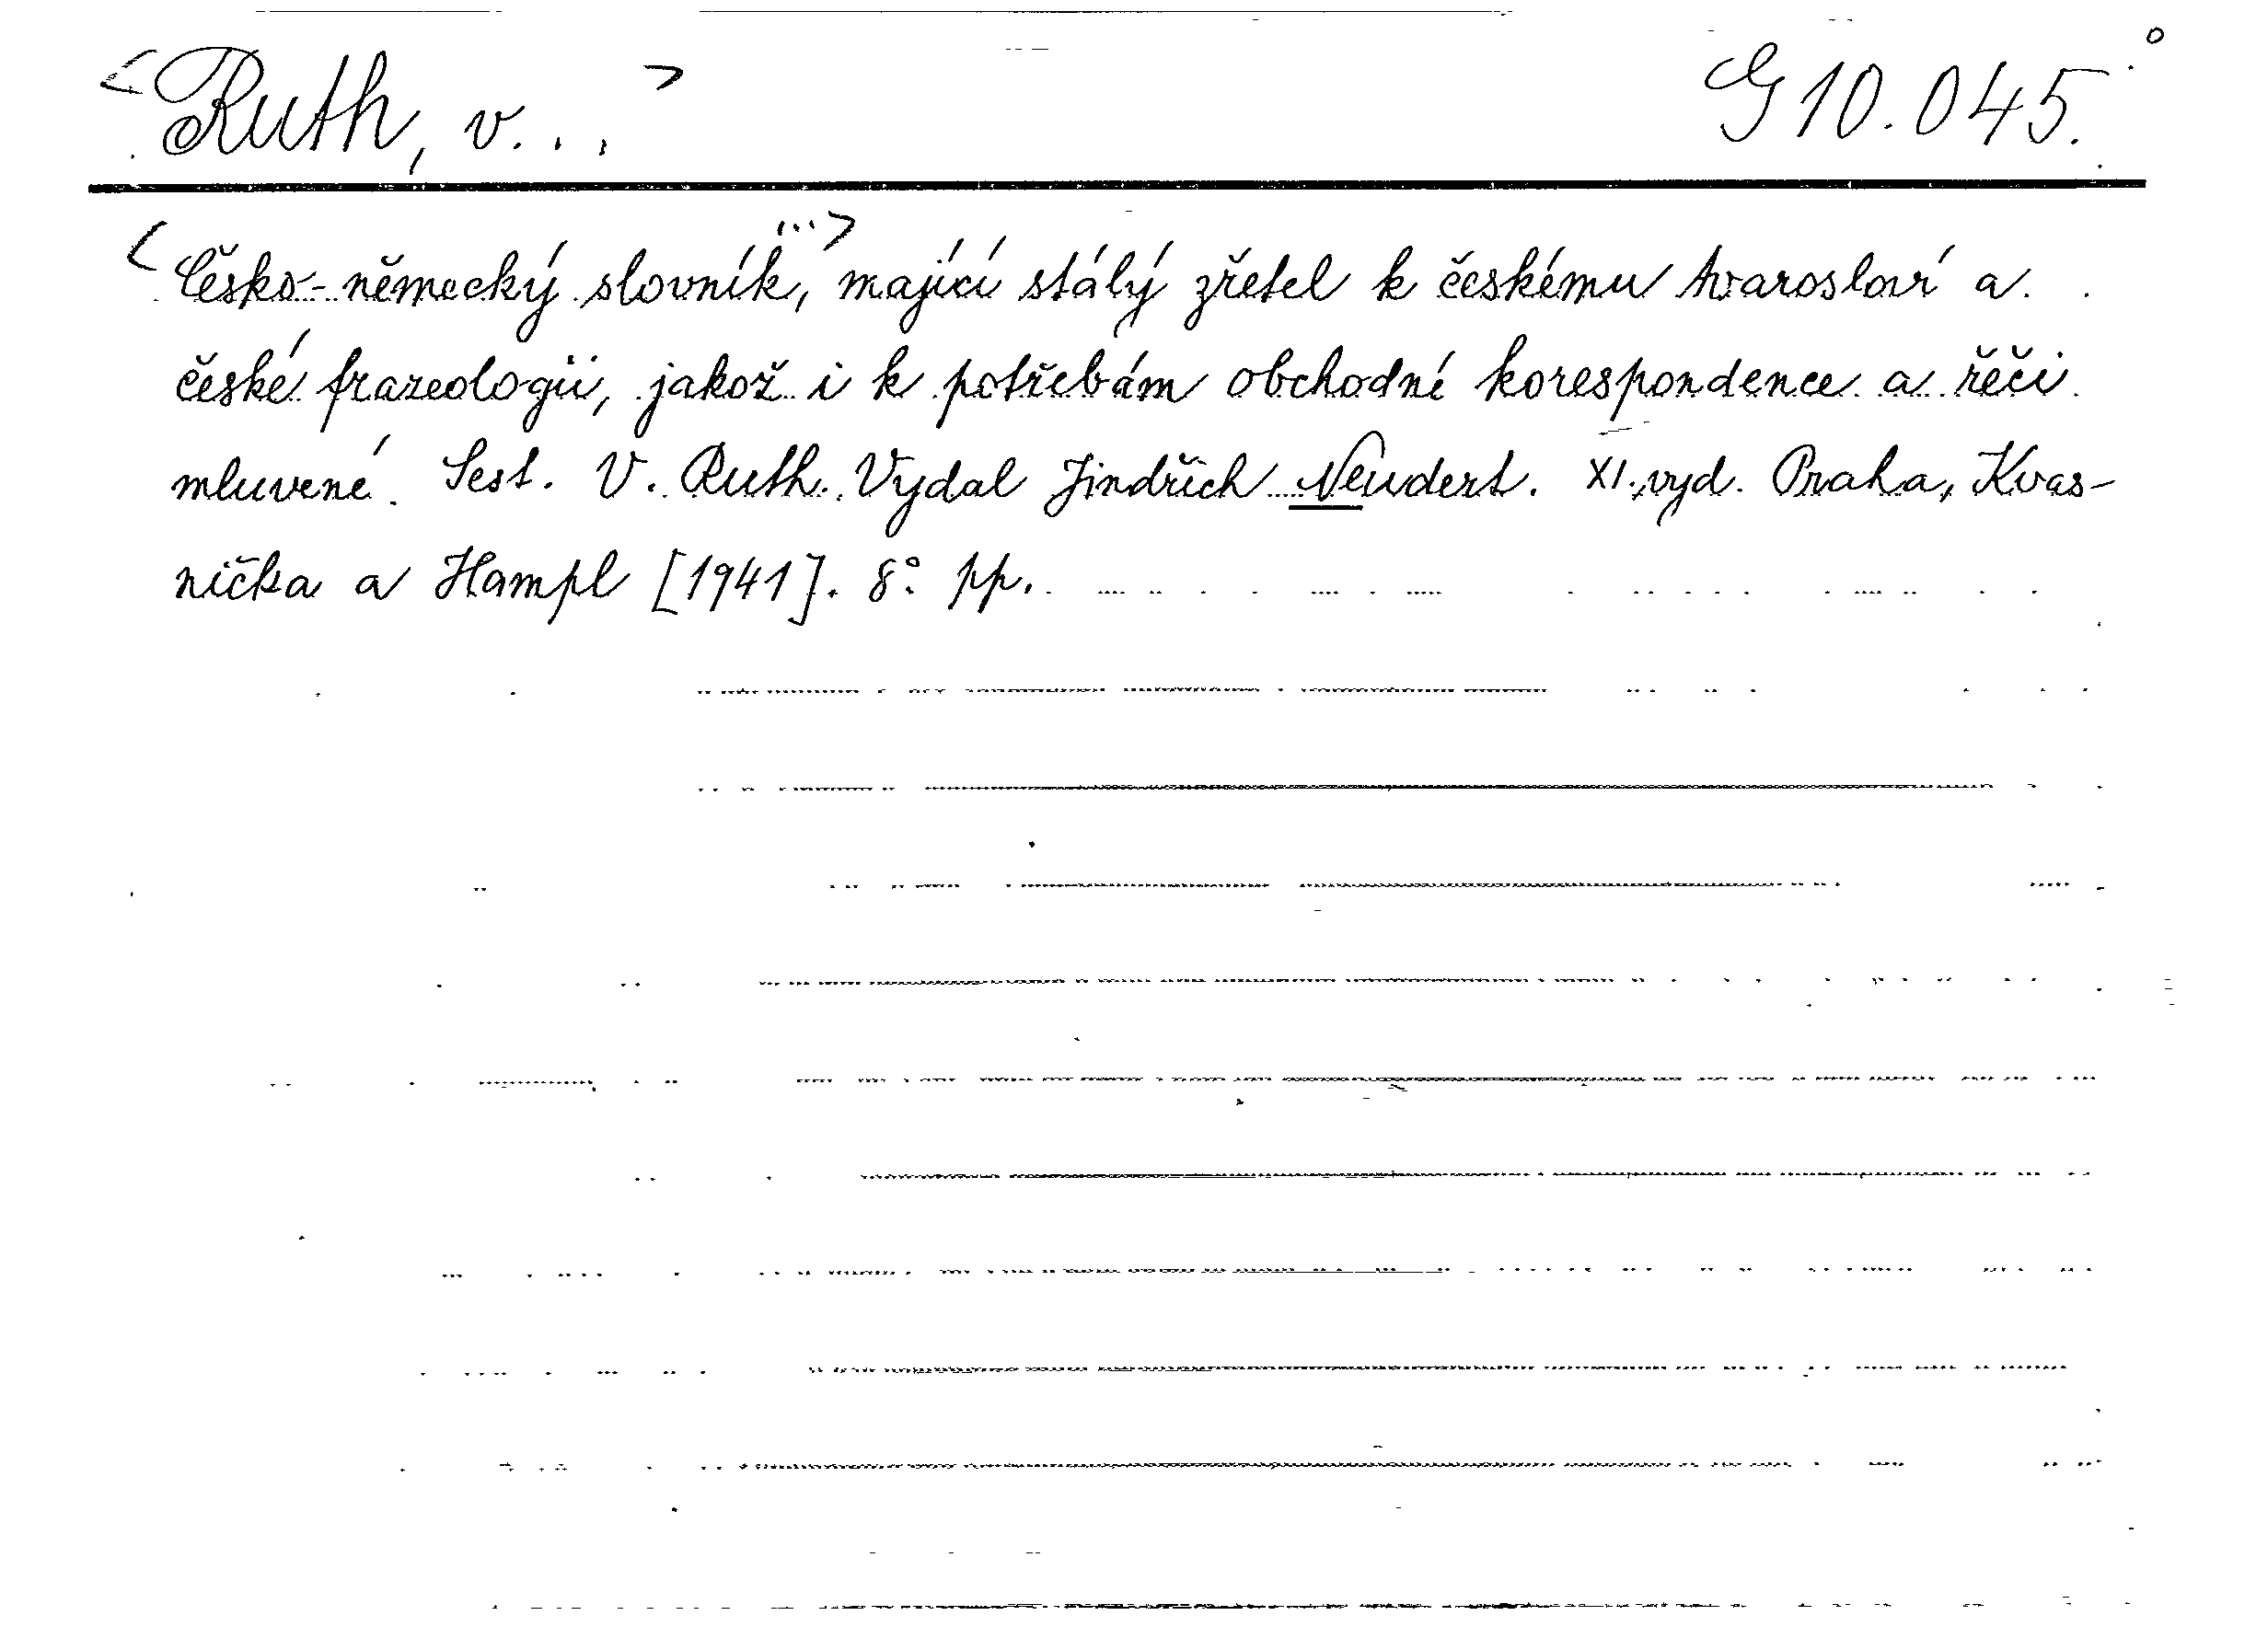 <Ruth, V...> G 10.045.
<Česko-německý slovník,...> mající stálý zřetel k českému tvarosloví a
české frazeologii, jakož i k potřebám obchodní korespondence a řěči
mluvené. Sest. V. Ruth. Vydal Jindřich Neudert. XI. vyd. Praha, Kvas-
nička a Hampl [1941]. 8°. pp.